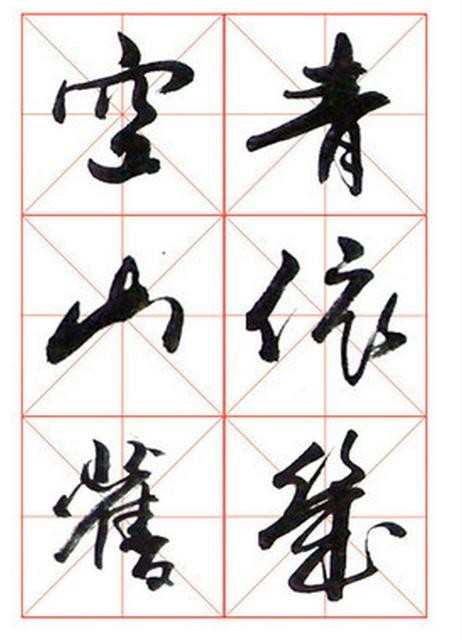 空青
山依
舊幾